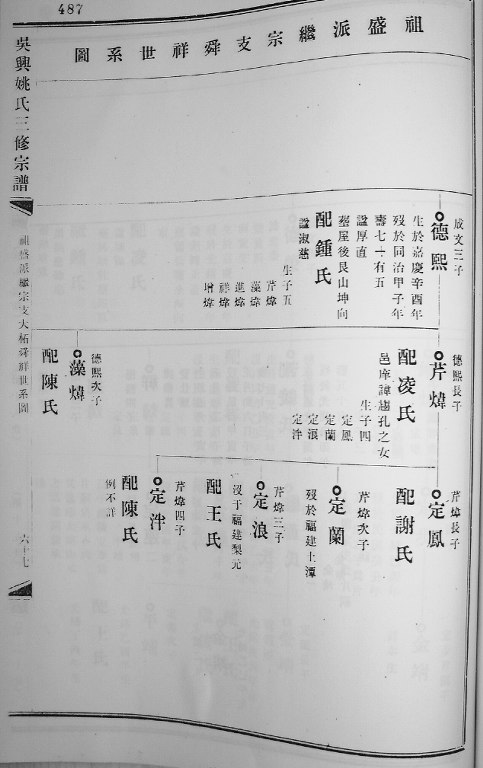 487
祖盛派繼宗支舜祥世系圖
吳興姚氏三修宗譜
祖盛派繼宗支大柘舜祥世系圖
六十七
成文三子
德熙
生於嘉慶辛酉年
歿於同治甲子年
壽七十有五
諡厚直
塟屋後艮山坤向
配鍾氏
諡淑慈
生子五
芹煒
藻煒
進煒
祥煒
增煒
德熙長子
芹煒
配凌氏
邑庠諱孔之女
生子四
定鳳
定蘭
定浪
定泮
德熙次子
藻煒
配陳氏
芹煒長子
定鳳
配謝氏
芹煒次子
定蘭
歿於福建上潭
芹煒三子
定浪
歿于福建梨元
配王氏
芹煒四子
定泮
配陳氏
例不詳